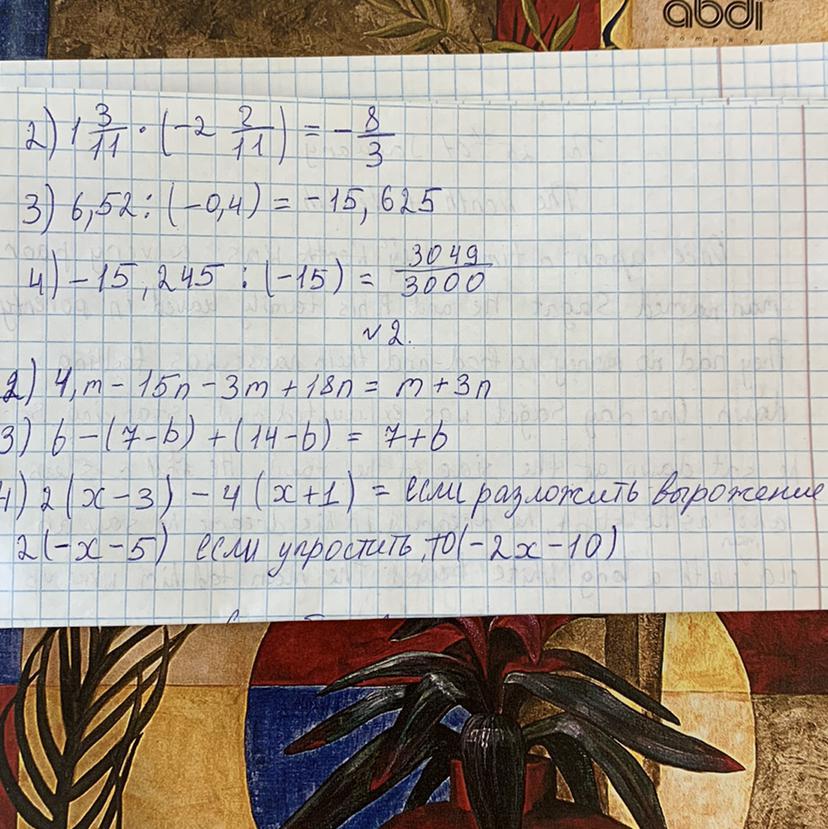 abdi
company
2) 1 3/11 · (-2 2/11) = - 8/3
3) 6,52 : (-0,4) = -15,625
4) -15,245 : (-15) = 3049/3000
№2.
2) 4,m - 15n - 3m + 18n = m + 3n
3) 6 - (7 - b) + (14 - b) = 7 + b
4) 2(x - 3) - 4(x + 1) = если разложить вырожение
2(-x - 5) если упростить, то (-2x - 10)